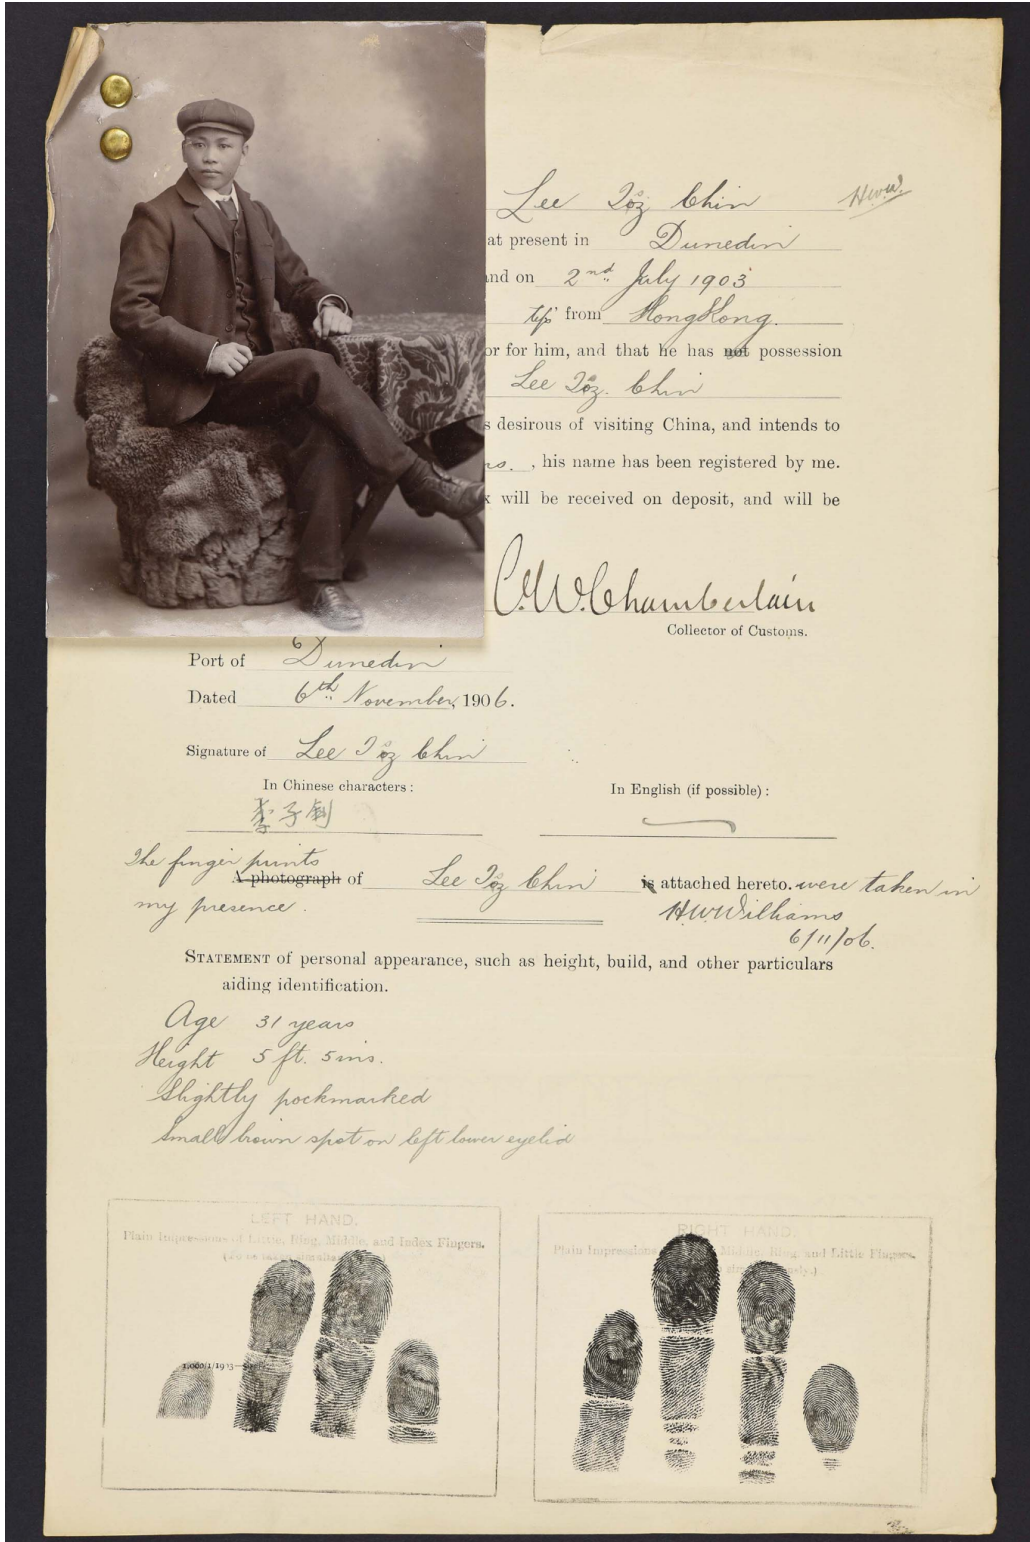 Lee Toz Chin
H.W.W.
at present in Dunedin
and on 2nd July 1903
from HongKong.
or for him, and that he has not possession
Lee Toz. Chin
s desirous of visiting China, and intends to
, his name has been registered by me.
x will be received on deposit, and will be
C.W.Chamberlain
Collector of Customs.
Port of Dunedin
Dated 6th November, 1906.
Signature of Lee Toz Chin
In Chinese characters:
In English (if possible):
李子釗
The finger prints
A photograph of Lee Toz Chin is attached hereto. were taken in
my presence.
H.W.Williams
6/11/06.
STATEMENT of personal appearance, such as height, build, and other particulars
aiding identification.
Age 31 years
Height 5 ft. 5 ins.
Slightly pockmarked
Small brown spot on left lower eyelid
LEFT HAND.
Plain Impressions of Little, Ring, Middle, and Index Fingers.
RIGHT HAND.
Plain Impressions Middle, Ring and Little Fingers.